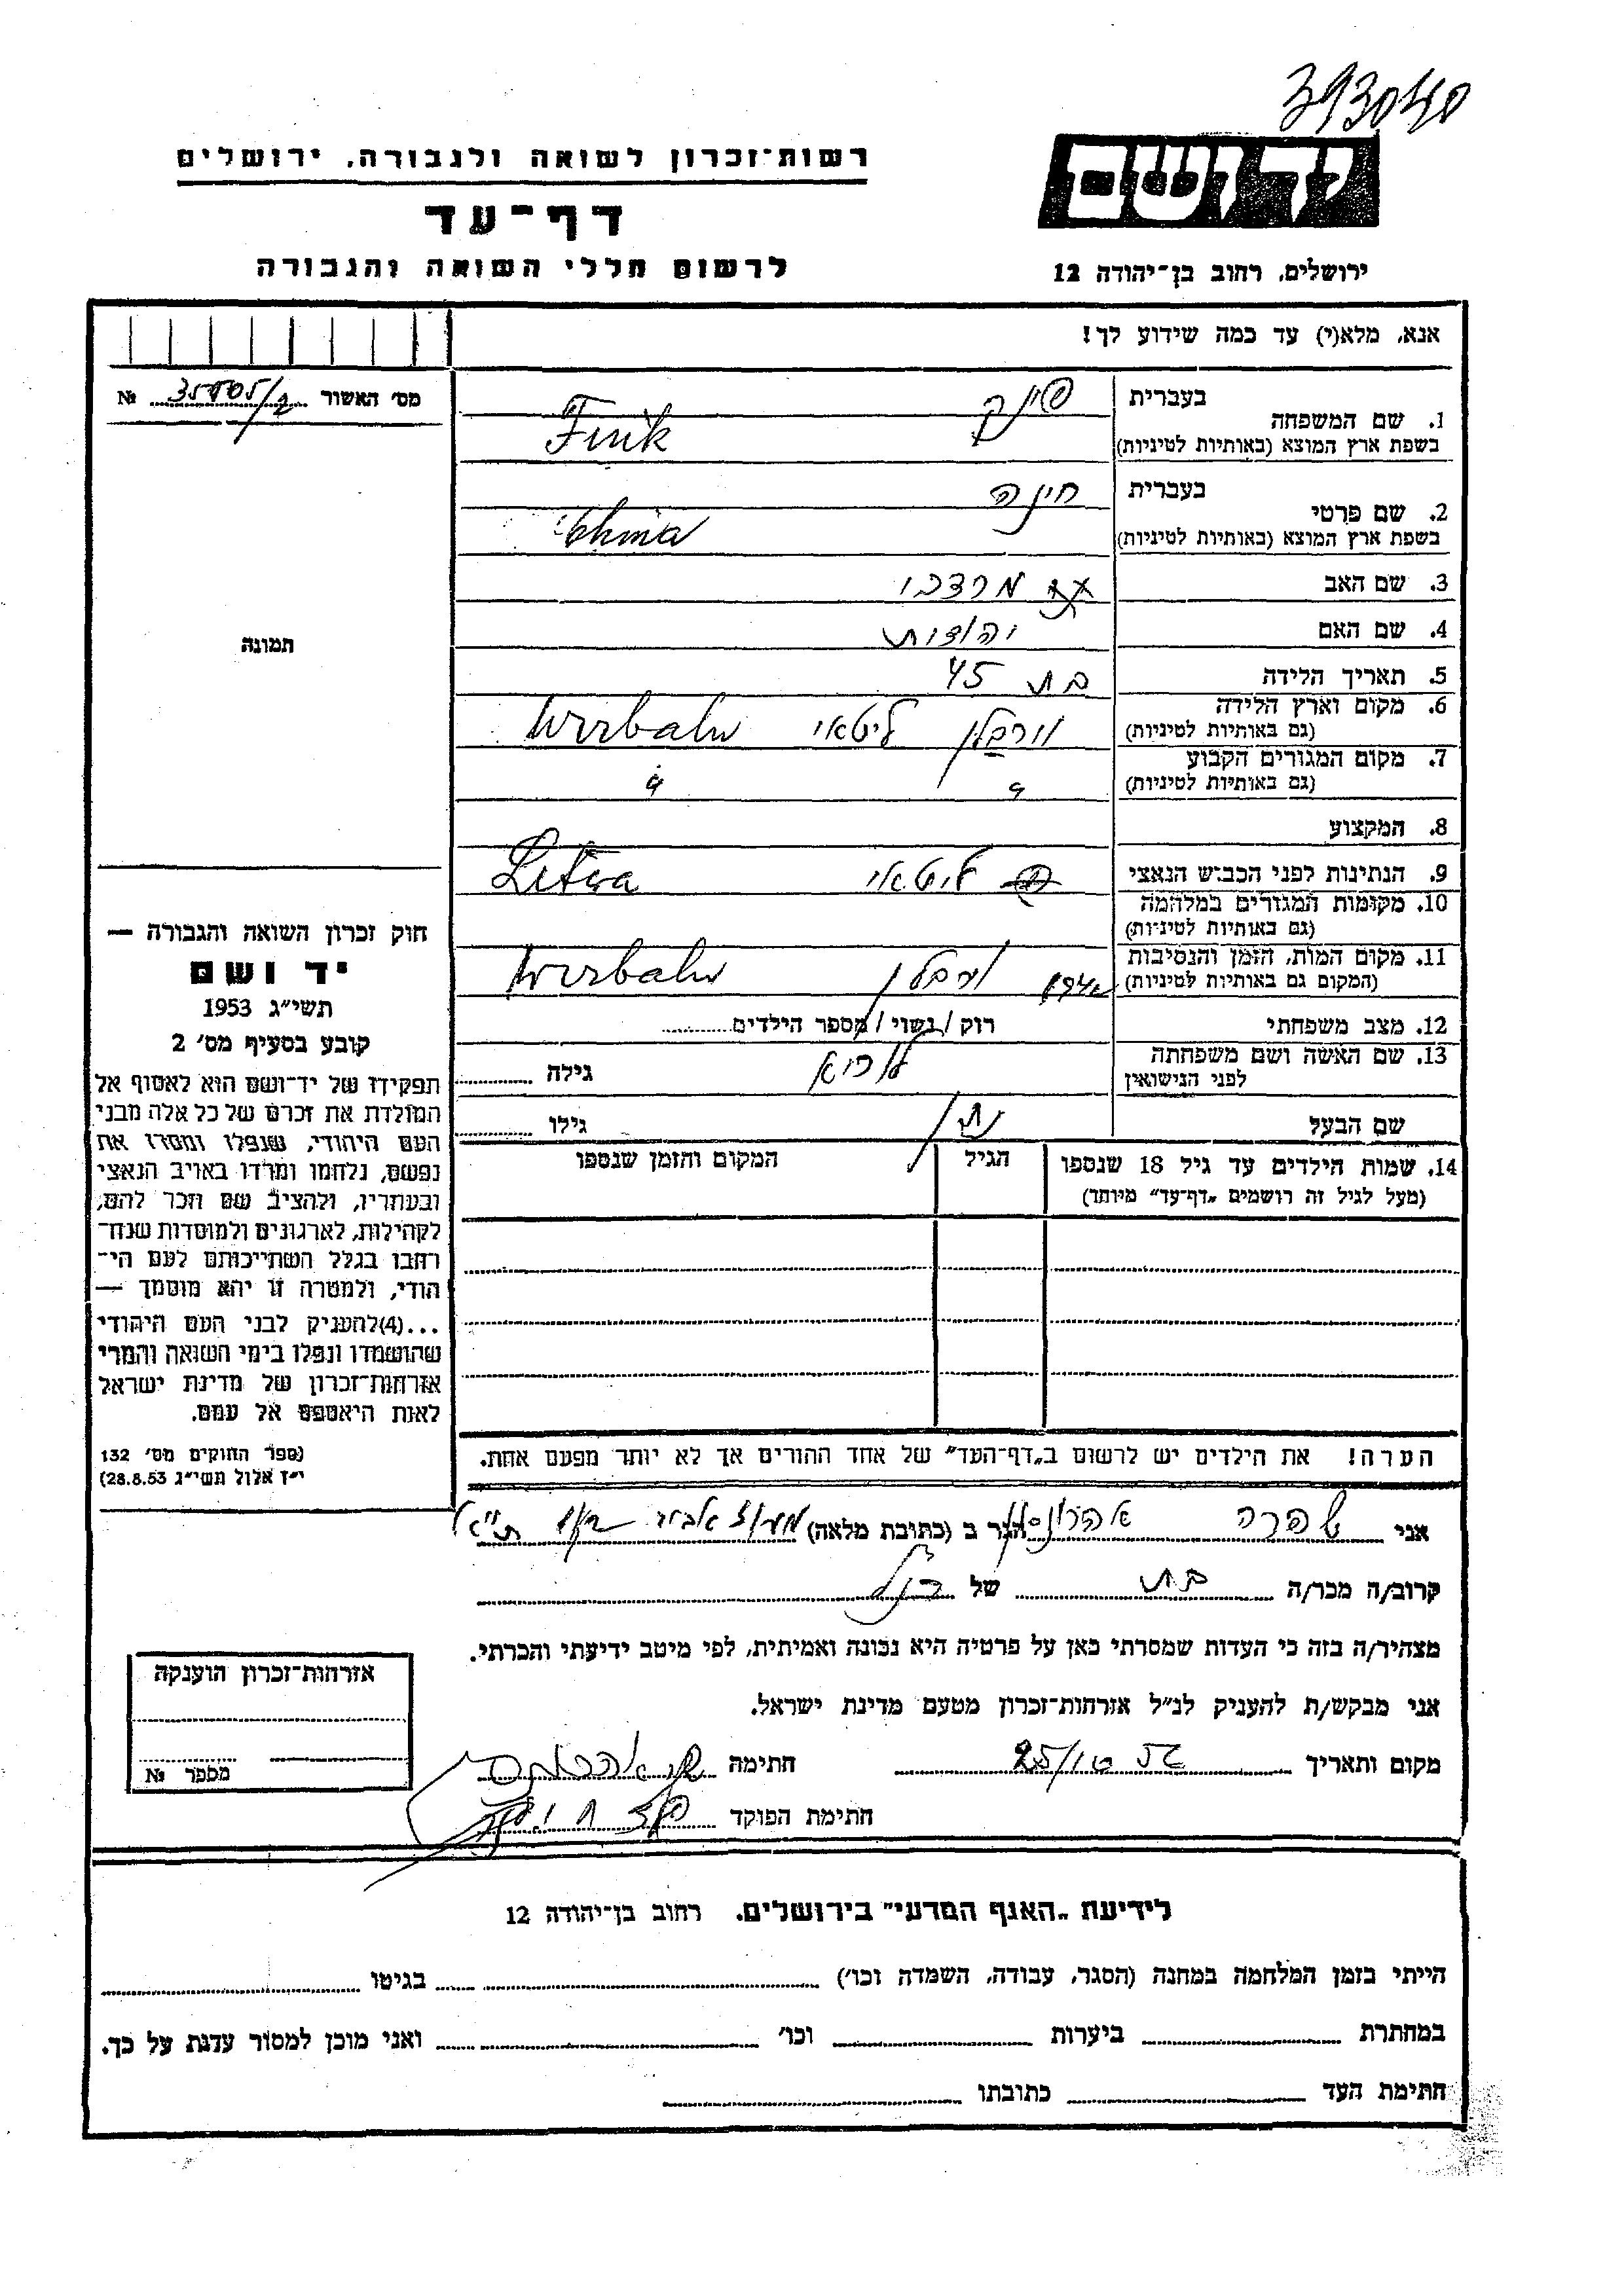 393040
יד ושם
רשות־זכרון לשואה ולגבורה, ירושלים
דף־עד
לרשום חללי השואה והגבורה
ירושלים, רחוב בן־יהודה 12
אנא, מלא(י) עד כמה שידוע לך!
מס׳ האשור № /2
בעברית פינק
1. שם המשפחה
בשפת ארץ המוצא (באותיות לטיניות) Fink
בעברית חינה
2. שם פרטי
בשפת ארץ המוצא (באותיות לטיניות) China
3. שם האב מרדכי
4. שם האם יהודית
5. תאריך הלידה בת 45
6. מקום וארץ הלידה
(גם באותיות לטיניות) וירבלן ליטאי Wirbaln
7. מקום המגורים הקבוע
(גם באותיות לטיניות)
8. המקצוע
9. הנתינות לפני הכבוש הנאצי ליטאי Litwa
10. מקומות המגורים במלחמה
(גם באותיות לטיניות)
11. מקום המות, הזמן והנסיבות
(המקום גם באותיות לטיניות) וירבלן Wirbaln
12. מצב משפחתי רוק / נשוי / מספר הילדים
13. שם האשה ושם משפחתה
לפני הנישואין גילה
שם הבעל גילו
14. שמות הילדים עד גיל 18 שנספו הגיל המקום והזמן שנספו
(מעל לגיל זה רושמים „דף־עד״ מיוחד)
הערה! את הילדים יש לרשום ב„דף־העד״ של אחד ההורים אך לא יותר מפעם אחת.
תמונה
חוק זכרון השואה והגבורה —
יד ושם
תשי״ג 1953
קובע בסעיף מס׳ 2
תפקידו של יד־ושם הוא לאסוף אל
המולדת את זכרם של כל אלה מבני
העם היהודי, שנפלו ומסרו את
נפשם, נלחמו ומרדו באויב הנאצי
ובעוזריו, ולהציב שם וזכר להם,
לקהילות, לארגונים ולמוסדות שנח־
רבו בגלל השתייכותם לעם הי־
הודי, ולמטרה זו יהא מוסמך —
...(4)להעניק לבני העם היהודי
שהושמדו ונפלו בימי השואה והמרי
אזרחות־זכרון של מדינת ישראל
לאות היאספם אל עמם.
(ספר החוקים מס׳ 132
י״ז אלול תשי״ג 28.8.53)
אני שפרה אהרונסון הגר ב (כתובת מלאה)
קרוב/ה מכר/ה בת של הנ״ל
מצהיר/ה בזה כי העדות שמסרתי כאן על פרטיה היא נכונה ואמיתית, לפי מיטב ידיעתי והכרתי.
אני מבקש/ת להעניק לנ״ל אזרחות־זכרון מטעם מדינת ישראל.
מקום ותאריך חתימה
חתימת הפוקד
אזרחות־זכרון הוענקה
מספר №
לידיעת „האגף המדעי״ בירושלים. רחוב בן־יהודה 12
הייתי בזמן המלחמה במחנה (הסגר, עבודה, השמדה וכו׳) בגיטו
במחתרת ביערות וכו׳ ואני מוכן למסור עדות על כך.
חתימת העד כתובתו